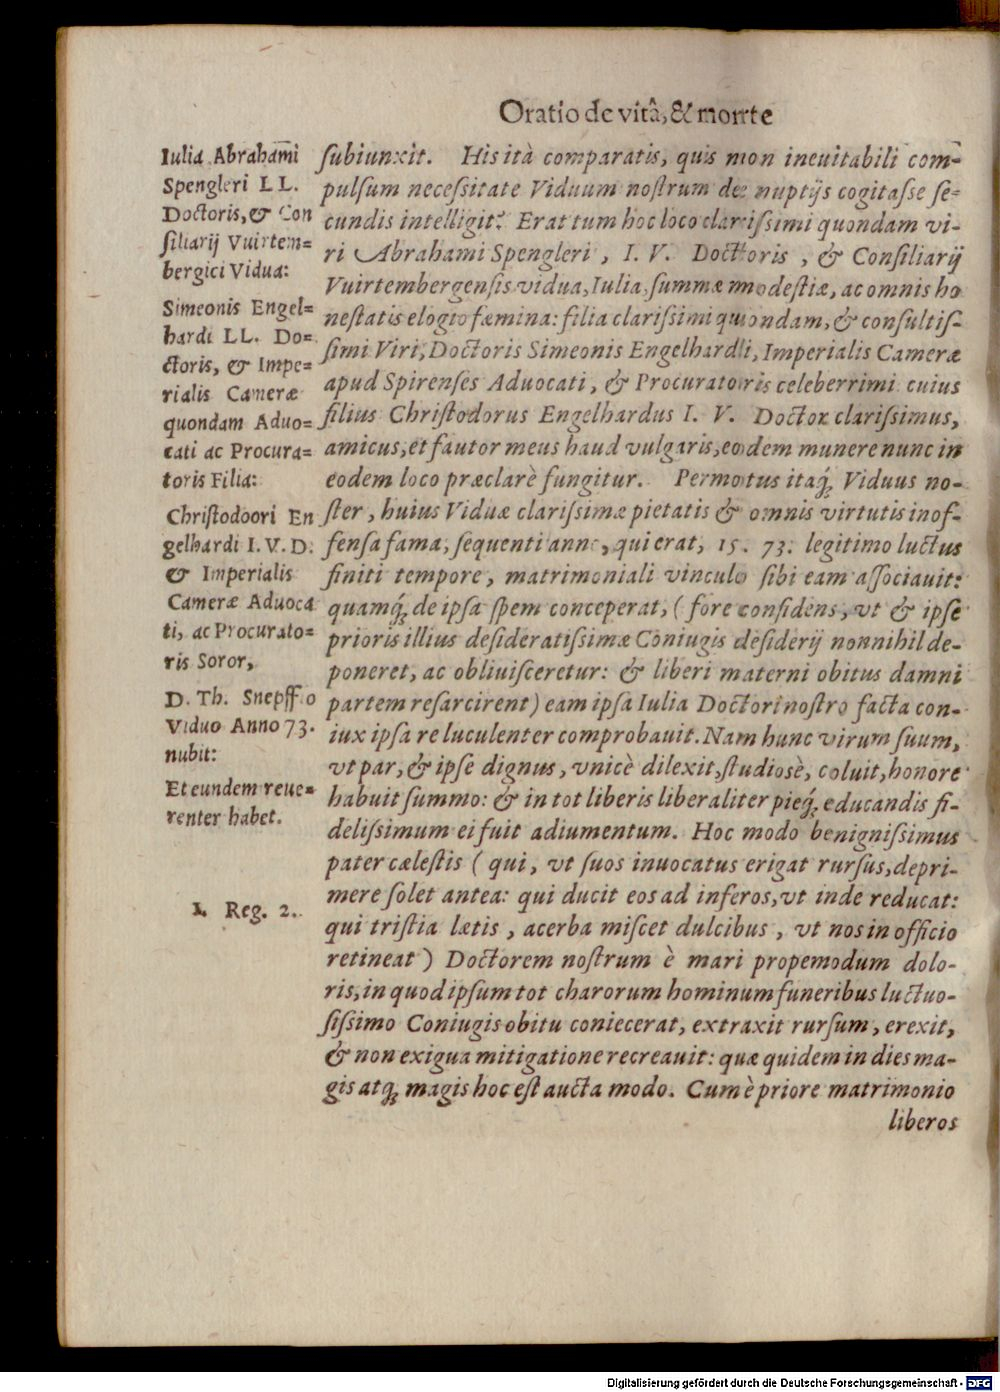 Oratio de vitâ, & morte
Iulia Abrahami
Spengleri LL.
Doctoris, & Con
ſiliarij Vuirtem=
bergici Vidua:
Simeonis Engel=
hardi LL. Do=
ctoris, & Impe=
rialis Cameræ
quondam Aduo=
cati ac Procura=
toris Filia:
Chriſtodoori En
gelhardi I. V. D.
& Imperialis
Cameræ Aduoca
ti, ac Procurato=
ris Soror,
D. Th. Snepffio
Viduo Anno 73.
nubit:
Et eundem reue=
renter habet.
1. Reg. 2.
ſubiunxit. His ità comparatis, quis non ineuitabili com-
pulſum neceſsitate Viduum noſtrum de nuptijs cogitaſse ſe=
cundis intelligit? Erat tum hoc loco clariſsimi quondam vi-
ri Abrahami Spengleri, I. V. Doctoris, & Conſiliarij
Vuirtembergenſis vidua, Iulia, ſummæ modeſtiæ, ac omnis ho
neſtatis elogio fæmina: filia clariſsimi quondam, & conſultiſ-
ſimi Viri, Doctoris Simeonis Engelhardi, Imperialis Cameræ
apud Spirenſes Aduocati, & Procuratoris celeberrimi cuius
filius Chriſtodorus Engelhardus I. V. Doctor clariſsimus,
amicus, et fautor meus haud vulgaris, eodem munere nunc in
eodem loco præclarè fungitur. Permotus itaq́ꝫ Viduus no-
ſter, huius Viduæ clariſsimæ pietatis & omnis virtutis inof-
fenſa fama, ſequenti anno, qui erat, 15. 73. legitimo luctus
finiti tempore, matrimoniali vinculo ſibi eam aſſociauit:
quamq́ꝫ de ipſa ſpem conceperat, (fore confidens, vt & ipſe
prioris illius deſideratiſsimæ Coniugis deſiderij nonnihil de-
poneret, ac obliuiſceretur: & liberi materni obitus damni
partem reſarcirent) eam ipſa Iulia Doctori noſtro facta con-
iux ipſa re luculenter comprobauit. Nam hunc virum ſuum,
vt par, & ipſe dignus, vnicè dilexit, ſtudiosè, coluit, honore
habuit ſummo: & in tot liberis liberaliter pieq́ꝫ educandis fi-
deliſsimum ei fuit adiumentum. Hoc modo benigniſsimus
pater cæleſtis (qui, vt ſuos inuocatus erigat rurſus, depri-
mere ſolet antea: qui ducit eos ad inferos, vt inde reducat:
qui triſtia lætis, acerba miſcet dulcibus, vt nos in officio
retineat) Doctorem noſtrum è mari propemodum dolo-
ris, in quod ipſum tot charorum hominum funeribus luctuo-
ſiſsimo Coniugis obitu coniecerat, extraxit rurſum, erexit,
& non exigua mitigatione recreauit: quæ quidem in dies ma-
gis atqꝫ magis hoc eſt aucta modo. Cum è priore matrimonio
liberos
Digitalisierung gefördert durch die Deutsche Forschungsgemeinschaft - DFG